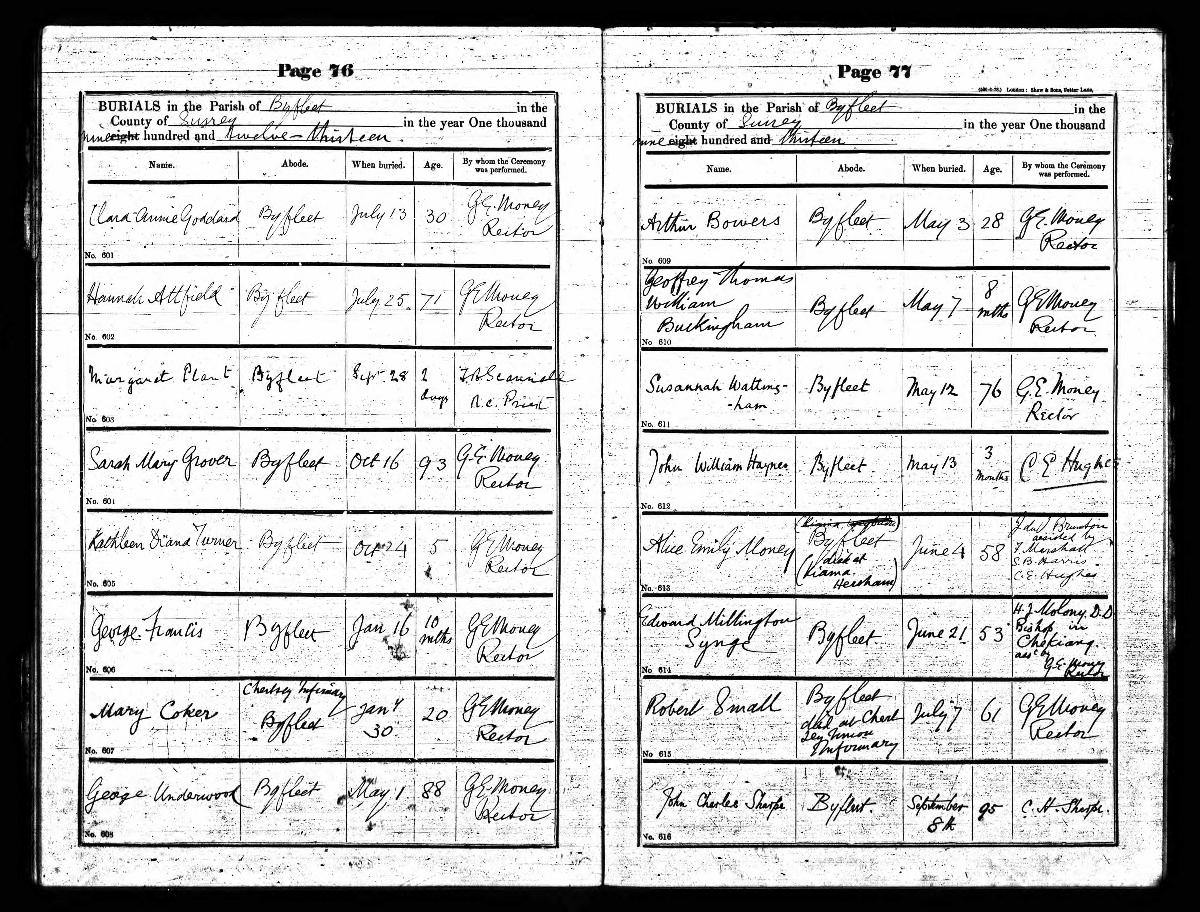 Page 76
BURIALS in the Parish of Byfleet in the
County of Surrey in the year One thousand
nine eight hundred and twelve - thirteen
Name. Abode. When buried. Age. By whom the Ceremony was performed.
Clara Annie Goddard Byfleet July 13 30 G.E. Money
Rector
No. 601
Hannah Attfield Byfleet July 25. 71 G E Money
Rector
No. 602
Margaret Plant Byfleet Sept. 28 2
days
R.C. Priest
No. 603
Sarah Mary Grover Byfleet Oct 16 93 G.E. Money.
Rector
No. 604
Kathleen Diana Turner Byfleet Oct 24 5 G E Money
Rector
No. 605
George Francis Byfleet Jan 16 10
mths G E Money
Rector
No. 606
Chertsey Infirmary
Mary Coker Byfleet Jan y
30. 20 G E Money
Rector
No. 607
George Underwood Byfleet May 1 88 G.E. Money
Rector
No. 608
Page 77
London: Shaw & Sons, Fetter Lane.
BURIALS in the Parish of Byfleet in the
County of Surrey in the year One thousand
nine eight hundred and thirteen
Name. Abode. When buried. Age. By whom the Ceremony was performed.
Arthur Bowers Byfleet May 3 28 G.E. Money
Rector
No. 609
Geoffrey Thomas
William
Buckingham Byfleet May 7 8
mths G E Money
Rector
No. 610
Susannah Watting-
-ham Byfleet May 12 76 G.E. Money.
Rector
No. 611
John William Haynes Byfleet. May 13 3
months C E Hughes
No. 612
Alice Emily Money Byfleet June 4 58
(died at
Kiama.
Hersham)
Brunton
assisted by
Marshall
S.B. Harris
C.E. Hughes
No. 613
Edward Millington
Synge Byfleet June 21 53 H.J. Molony. D.D
Bishop in
Chekiang.
asst by
G.E. Money
Rector
No. 614
Robert Small Byfleet
died at Chert
sey Union
Infirmary July 7 61 G E Money
Rector
No. 615
John Charles Sharpe Byfleet. September
8th 95 C. H. Sharpe.
No. 616